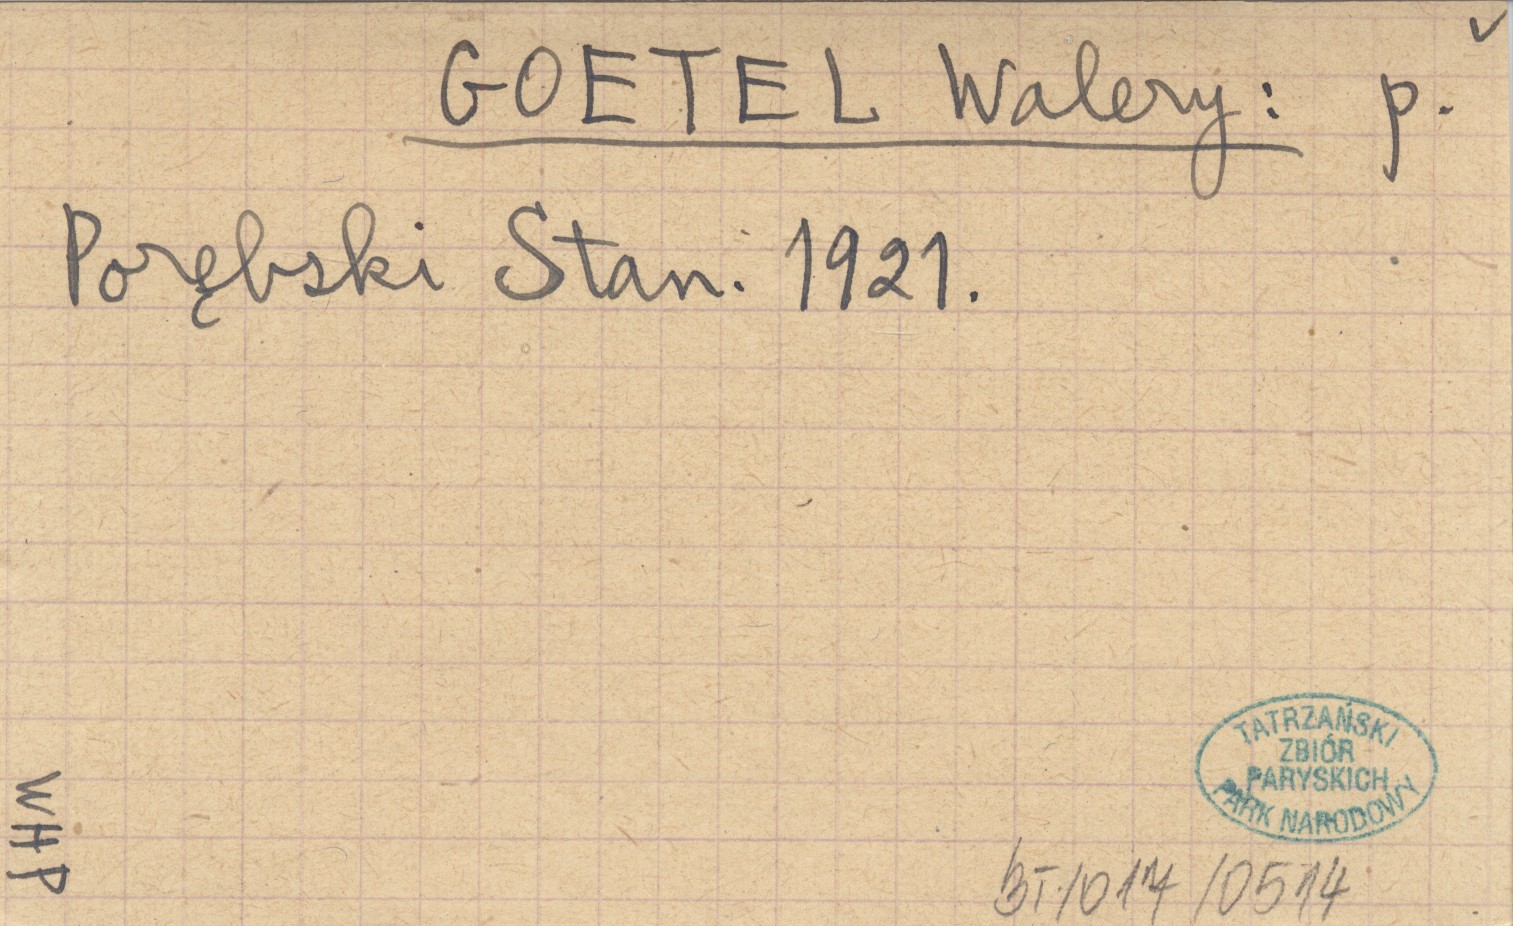 v
GOETEL Walery: p.
Porębski Stan. 1921.
TATRZAŃSKI
ZBIÓR
PARYSKICH
PARK NARODOWY
WHP
BT/017/0514